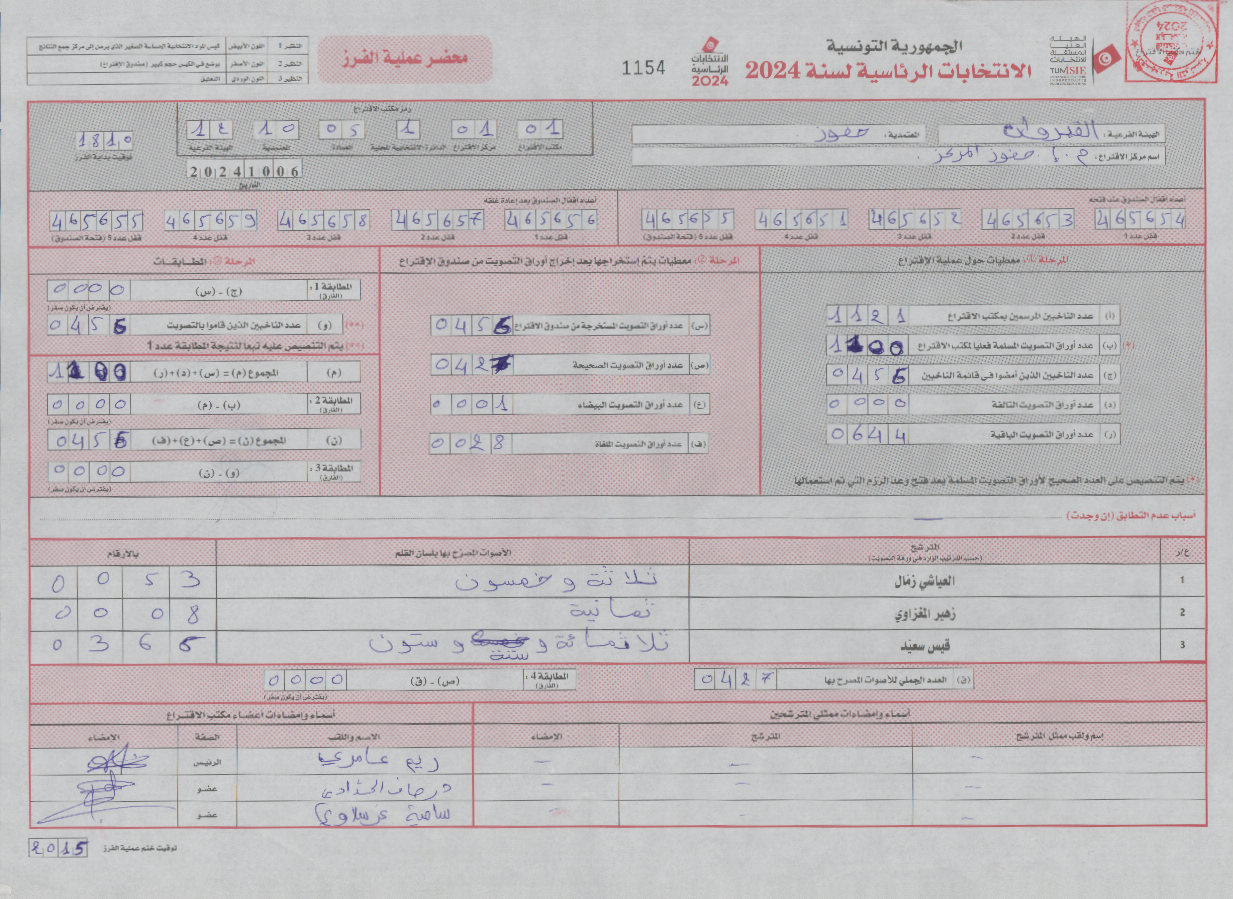 الجمهورية التونسية
الانتخابات الرئاسية لسنة 2024
الهيئة العليا المستقلة للانتخابات
TUNISIE
الانتخابات الرئاسية 2024
1154
محضر عملية الفرز
النظير 1 اللون الأبيض كيس المواد الانتخابية الحساسة الصغير الذي يرسل إلى مركز جمع النتائج
النظير 2 اللون الأصفر يوضع في الكيس حجم كبير (صندوق الإقتراع)
النظير 3 اللون الوردي التعليق
الهيئة الفرعية: القيروان المعتمدية: حفوز
اسم مركز الاقتراع: م. إ. حفوز المركز
رمز مكتب الاقتراع
01 01 1 05 10 12
مكتب الاقتراع مركز الاقتراع الدائرة الانتخابية المحلية العمادة المعتمدية الهيئة الفرعية
1810
توقيت بداية الفرز
20241006
التاريخ
أعداد اقفال الصندوق عند فتحه
465654 465653 465652 465651 465655
قفل عدد 1 قفل عدد 2 قفل عدد 3 قفل عدد 4 قفل عدد 5 (فتحة الصندوق)
أعداد اقفال الصندوق بعد إعادة غلقه
465656 465657 465658 465659 465655
قفل عدد 1 قفل عدد 2 قفل عدد 3 قفل عدد 4 قفل عدد 5 (فتحة الصندوق)
المرحلة ①: معطيات حول عملية الإقتراع
(أ) عدد الناخبين المرسمين بمكتب الاقتراع 1121
(*) (ب) عدد أوراق التصويت المسلمة فعليا لمكتب الاقتراع 1100
(ج) عدد الناخبين الذين أمضوا في قائمة الناخبين 0456
(د) عدد أوراق التصويت التالفة 0000
(ر) عدد أوراق التصويت الباقية 0644
(*) يتم التنصيص على العدد الصحيح لأوراق التصويت المسلمة بعد فتح وعد الرزم التي تم استعمالها
المرحلة ②: معطيات يتم إستخراجها بعد إخراج أوراق التصويت من صندوق الإقتراع
(س) عدد أوراق التصويت المستخرجة من صندوق الاقتراع 0456
(ص) عدد أوراق التصويت الصحيحة 0427
(ع) عدد أوراق التصويت البيضاء 0001
(ف) عدد أوراق التصويت الملغاة 0028
المرحلة ③: المطابقات
المطابقة 1: (الفارق) (ج) - (س) 0000
(يفترض أن يكون صفر)
(**) (و) عدد الناخبين الذين قاموا بالتصويت 0456
(**) يتم التنصيص عليه تبعا لنتيجة المطابقة عدد 1
(م) المجموع (م) = (س)+(د)+(ر) 1100
المطابقة 2: (الفارق) (ب) - (م) 0000
(يفترض أن يكون صفر)
(ن) المجموع (ن) = (ص)+(ع)+(ف) 0456
المطابقة 3: (الفارق) (و) - (ن) 0000
(يفترض أن يكون صفر)
أسباب عدم التطابق (إن وجدت)
ع/ر المترشح الأصوات المصرح بها بلسان القلم بالأرقام
(حسب الترتيب الوارد في ورقة التصويت)
1 العياشي زمال ثلاثة و خمسون 0053
2 زهير المغزاوي ثمانية 0008
3 قيس سعيّد ثلاثمائة و ستة و ستون 0366
(ق) العدد الجملي للأصوات المصرح بها 0427
المطابقة 4: (الفارق) (ص) - (ق) 0000
(يفترض أن يكون صفر)
أسماء وإمضاءات ممثلي المترشحين
أسماء وإمضاءات أعضاء مكتب الاقتراع
إسم ولقب ممثل المترشح المترشح الامضاء الاسم واللقب الصفة الامضاء
ريم عامري الرئيس
درصاف الحدادي عضو
سامية عضو
توقيت ختم عملية الفرز 2015